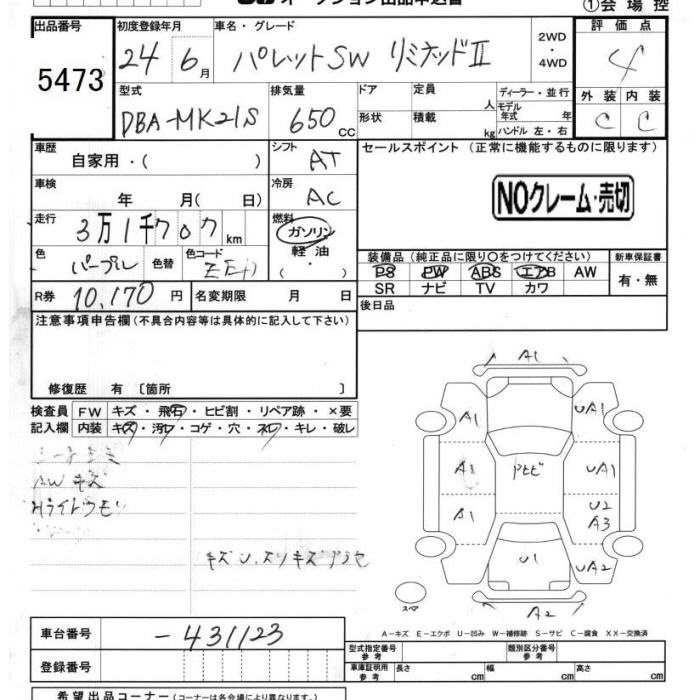 ①会場控
出品番号
5473
初度登録年月
24 6月
車名・グレード
パレットSW リミテッドⅡ
2WD
・
4WD
評価点
4
型式
DBA-MK21S
排気量
650cc
ドア
定員
人
形状
積載
kg
ディーラー・並行
モデル年式 年
ハンドル 左・右
外装 内装
C C
車歴
自家用・( )
シフト
AT
セールスポイント(正常に機能するものに限ります)
NOクレーム・売切
車検
年 月(日)
冷房
AC
走行
3万1千707km
燃料
ガソリン
軽油
色
パープル
色替
色コード
装備品(純正品に限り○をつけてください)
PS PW ABS エアB AW
SR ナビ TV カワ
新車保証書
有・無
R券 10,170円
名変期限 月 日
後日品
注意事項申告欄(不具合内容等は具体的に記入して下さい)
修復歴 有〔箇所 〕
検査員
記入欄
FW キズ・飛石・ヒビ割・リペア跡・×要
内装 キズ・汚レ・コゲ・穴・スレ・キレ・破レ
AWキズ
A1
A1 UA1
A1 UA1
A1
U2
A3
U1
UA2
A2
スペア
A-キズ E-エクボ U-凹み W-補修跡 S-サビ C-腐食 XX-交換済
車台番号
-431123
登録番号
型式指定番号
参考
類別区分番号
参考
車庫証明用
参考
長さ cm 幅 cm 高さ cm
希望出品コーナー(コーナーは各会場により異なります。)